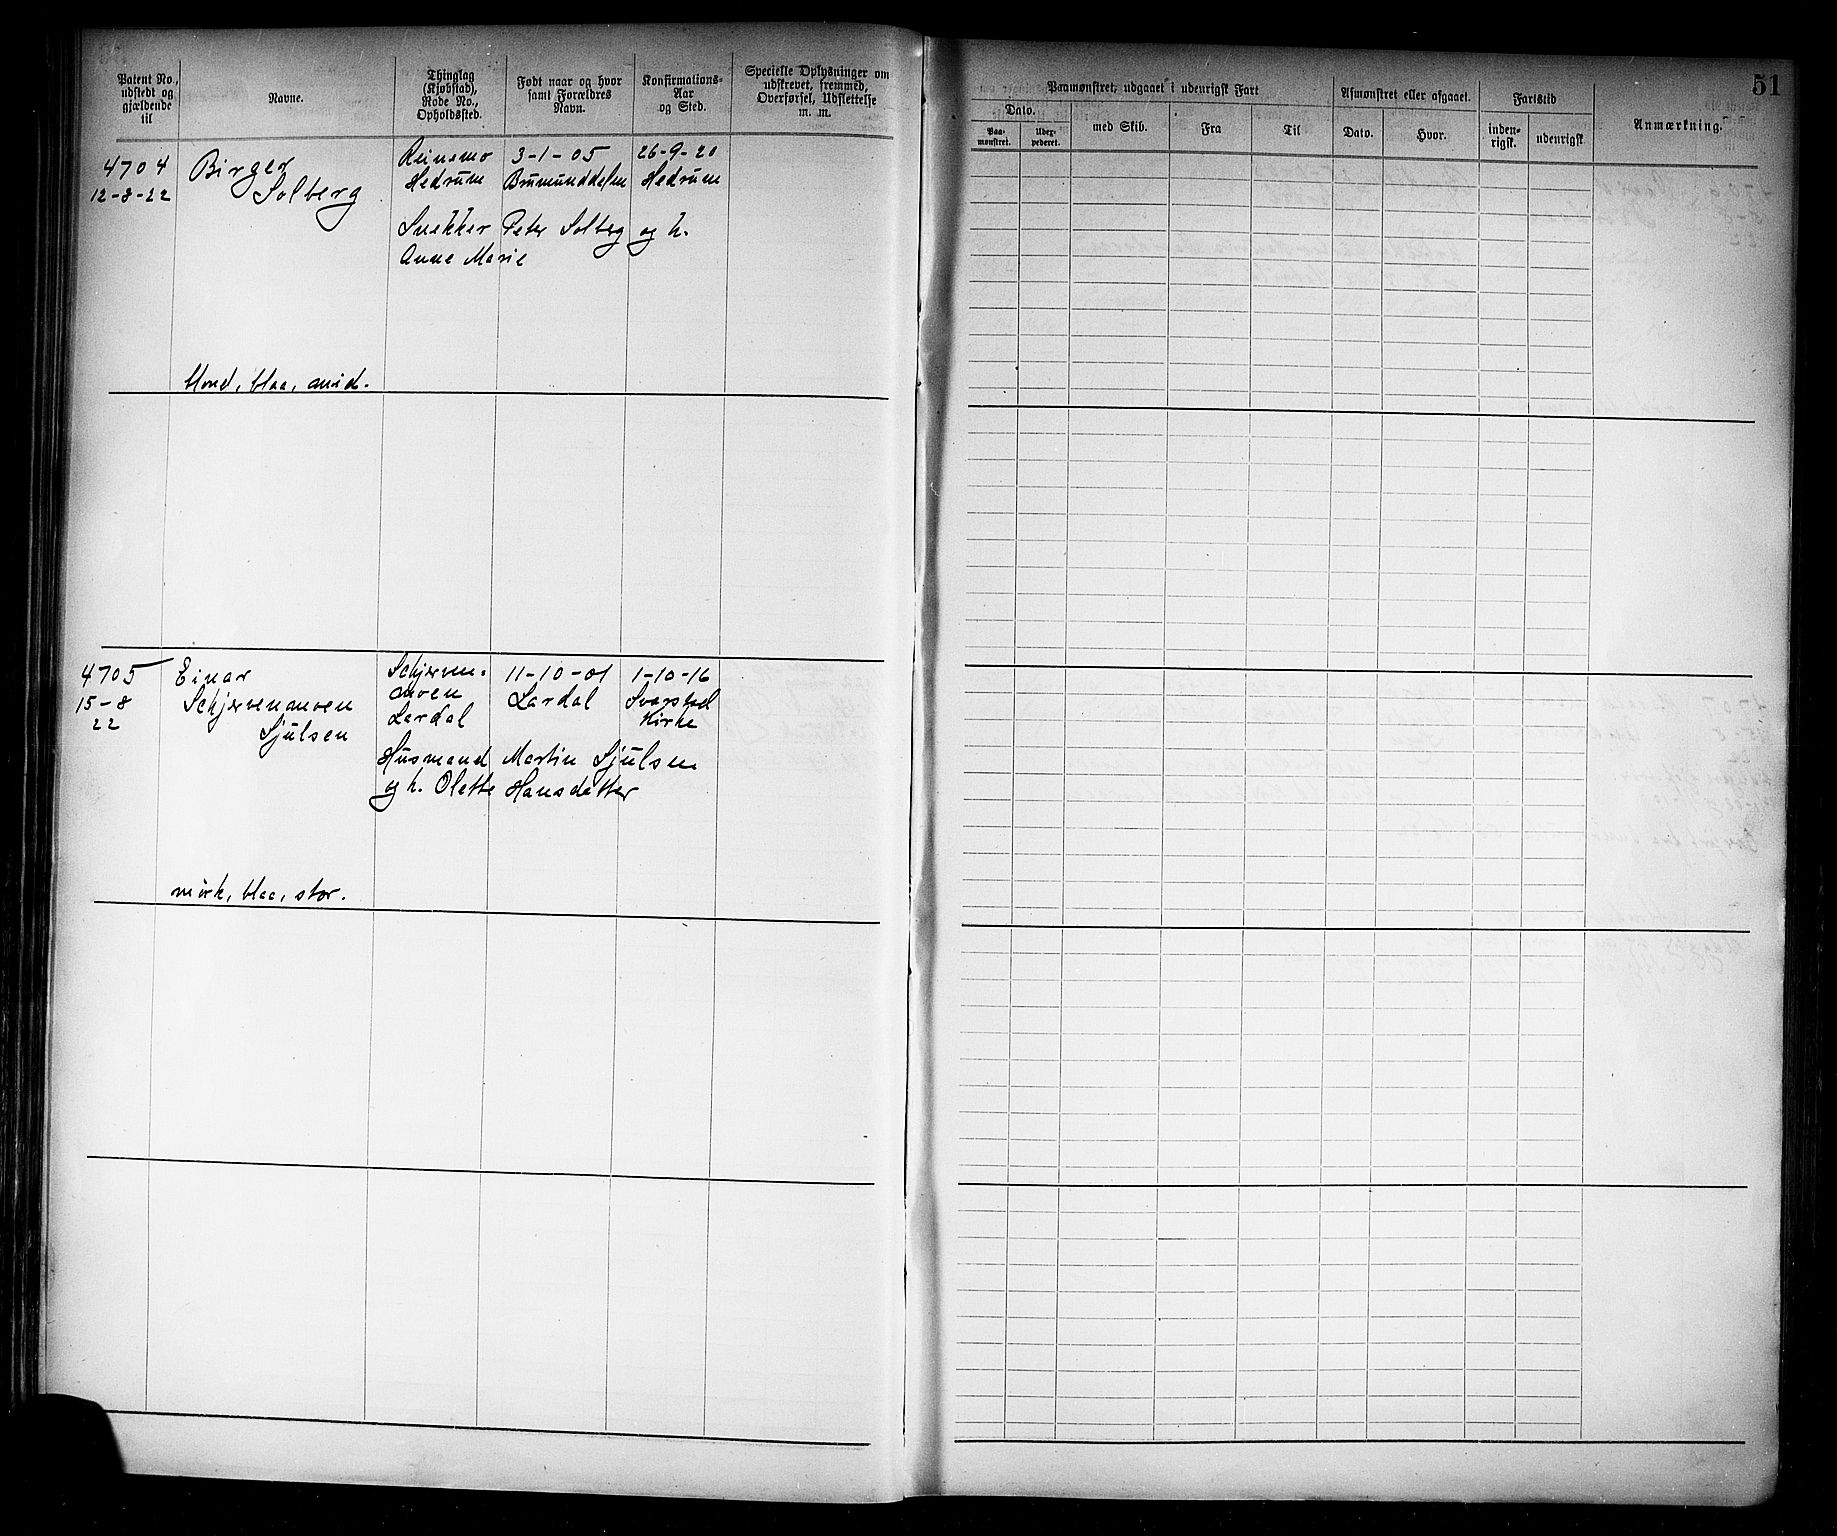 Patent No., udstedt og gjældende til
Navne.
Thinglag (Kjøbstad), Rode No., Opholdssted.
Født naar og hvor samt Forældres Navn.
Konfirmations-Aar og Sted.
Specielle Oplysninger om udskrevet, fremmed, Overførsel, Udslettelse m. m.
4704
12-8-22
Birger
Solberg
Reinsmo
Hedrum
3-1-05
Brumunddalen
26-9-20
Hedrum
Snekker Peter Solberg og h.
Anne Marie
blond, blaa, mid.
4705
15-8
22
Einar
Schjervenmoen
Sjulsen
Schjerven-
moen
Lardal
11-10-01
Lardal
1-10-16
Svarstad
Kirke
Husmand Martin Sjulsen
og h. Olette Hansdatter
mörk, blaa, stor.
51
Paamønstret, udgaaet i udenrigsk Fart
Dato.
Paa-mønstret.
med Skib.
Fra
Til
Afmønstret eller afgaaet.
Dato.
Hvor.
Fartstid
inden-rigsk.
udenrigsk
Anmærkning.